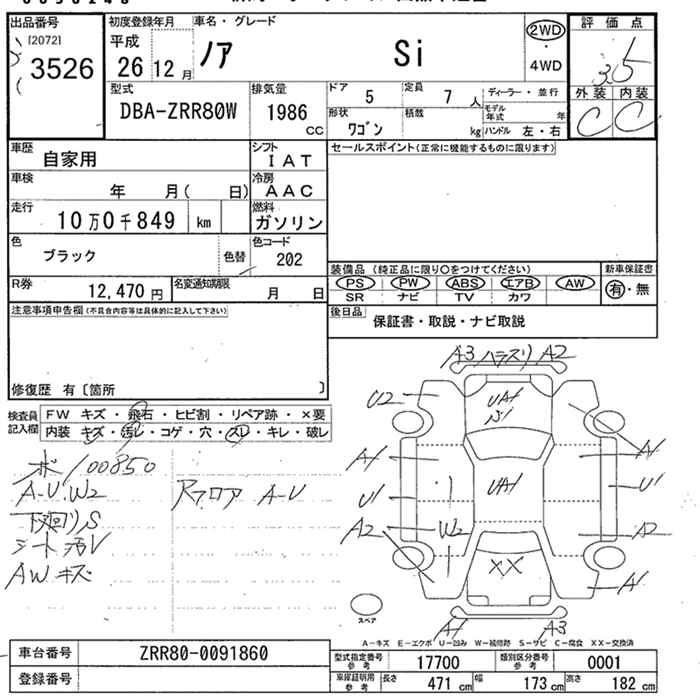 出品番号
[2072]
3526
初度登録年月
平成
26 12 月
車名・グレード
ノア Si
2WD
・
4WD
評価点
3.5
外装 内装
C C
型式
DBA-ZRR80W
排気量
1986 cc
ドア 5
定員 7 人
ディーラー・並行
モデル年式 年
形状 ワゴン
積載 kg
ハンドル 左・右
車歴 自家用
シフト IAT
セールスポイント(正常に機能するものに限ります)
車検 年 月( 日)
冷房 AAC
走行 10万0千849 km
燃料 ガソリン
色 ブラック 色替
色コード 202
装備品 (純正品に限り○をつけてください)
PS・PW・ABS・エアB・AW
SR ナビ TV カワ
新車保証書
有・無
R券 12,470 円
名変通知期限 月 日
後日品 保証書・取説・ナビ取説
注意事項申告欄(不具合内容等は具体的に記入して下さい)
修復歴 有〔箇所 〕
検査員記入欄
FW キズ・飛石・ヒビ割・リペア跡・×要
内装 キズ・汚レ・コゲ・穴・スレ・キレ・破レ
ボ/00850
A-U.W2
下廻りS
シート汚レ
AWキズ
Rフロア A-U
A3 ハラスリ A2
U2
UA1
A1
A1
U1
UA1
U1
A2
W2
A2
XX
A1
スペア
A1
A3
A-キズ E-エクボ U-凹み W-補修跡 S-サビ C-腐食 XX-交換済
車台番号 ZRR80-0091860
登録番号
型式指定番号 参考 17700
類別区分番号 参考 0001
車庫証明用 参考
長さ 471 cm 幅 173 cm 高さ 182 cm